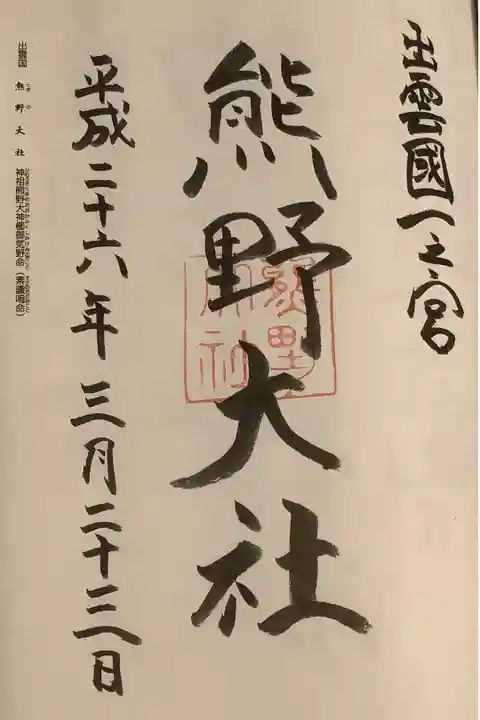 出雲國一之宮
熊野大社
熊野大社
平成二十六年三月二十三日
出雲国 熊野大社 神祖熊野大神櫛御気野命(素戔嗚命)